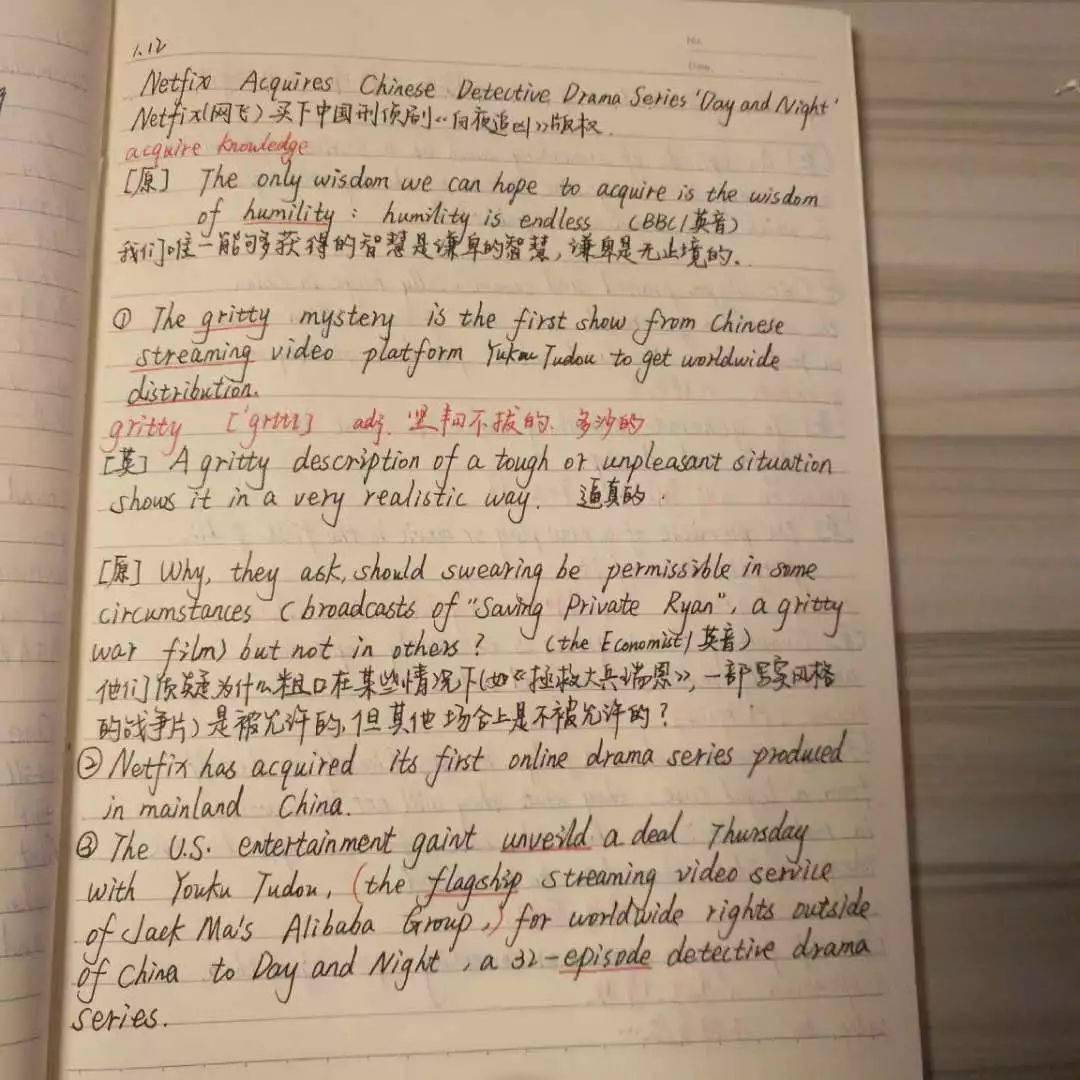 1.12
No.
Date
Netfix Acquires Chinese Detective Drama Series 'Day and Night'
Netfix(网飞)买下中国刑侦剧《白夜追凶》版权.
acquire knowledge
[原] The only wisdom we can hope to acquire is the wisdom
of humility : humility is endless (BBC/英音)
我们唯一能够多获得的智慧是谦卑的智慧,谦卑是无止境的.
① The gritty mystery is the first show from Chinese
streaming video platform Yukou Tudou to get worldwide
distribution.
gritty ['grɪtɪ] adj. 坚韧不拔的. 多沙的
[英] A gritty description of a tough or unpleasant situation
shows it in a very realistic way. 逼真的.
[原] Why, they ask, should swearing be permissible in some
circumstances (broadcasts of "Saving Private Ryan", a gritty
war film) but not in others? (the Economist/英音)
他们质疑为什么粗口在某些情况下(如《拯救大兵瑞恩》,一部写实风格
的战争片)是被允许的,但其他场合上是不被允许的?
② Netfix has acquired its first online drama series produced
in mainland China.
③ The U.S. entertainment gaint unveild a deal Thursday
with Youku Tudou, (the flagship streaming video service
of Jack Ma's Alibaba Group,) for worldwide rights outside
of China to Day and Night, a 32-episode detective drama
series.